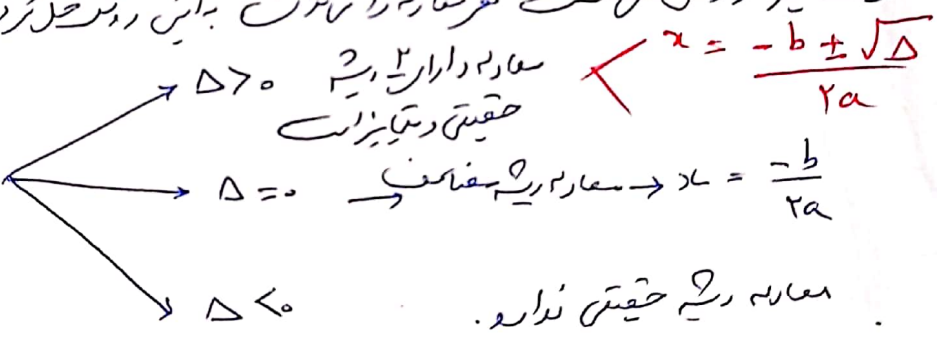 هر معادله را می‌توان به این روش حل کرد
Δ>۰ معادله دارای ۲ ریشه x = (-b ± √Δ)/۲a
حقیقی و متمایز است
Δ=۰ → معادله ریشه مضاعف → x = -b/۲a
Δ<۰ معادله ریشه حقیقی ندارد.